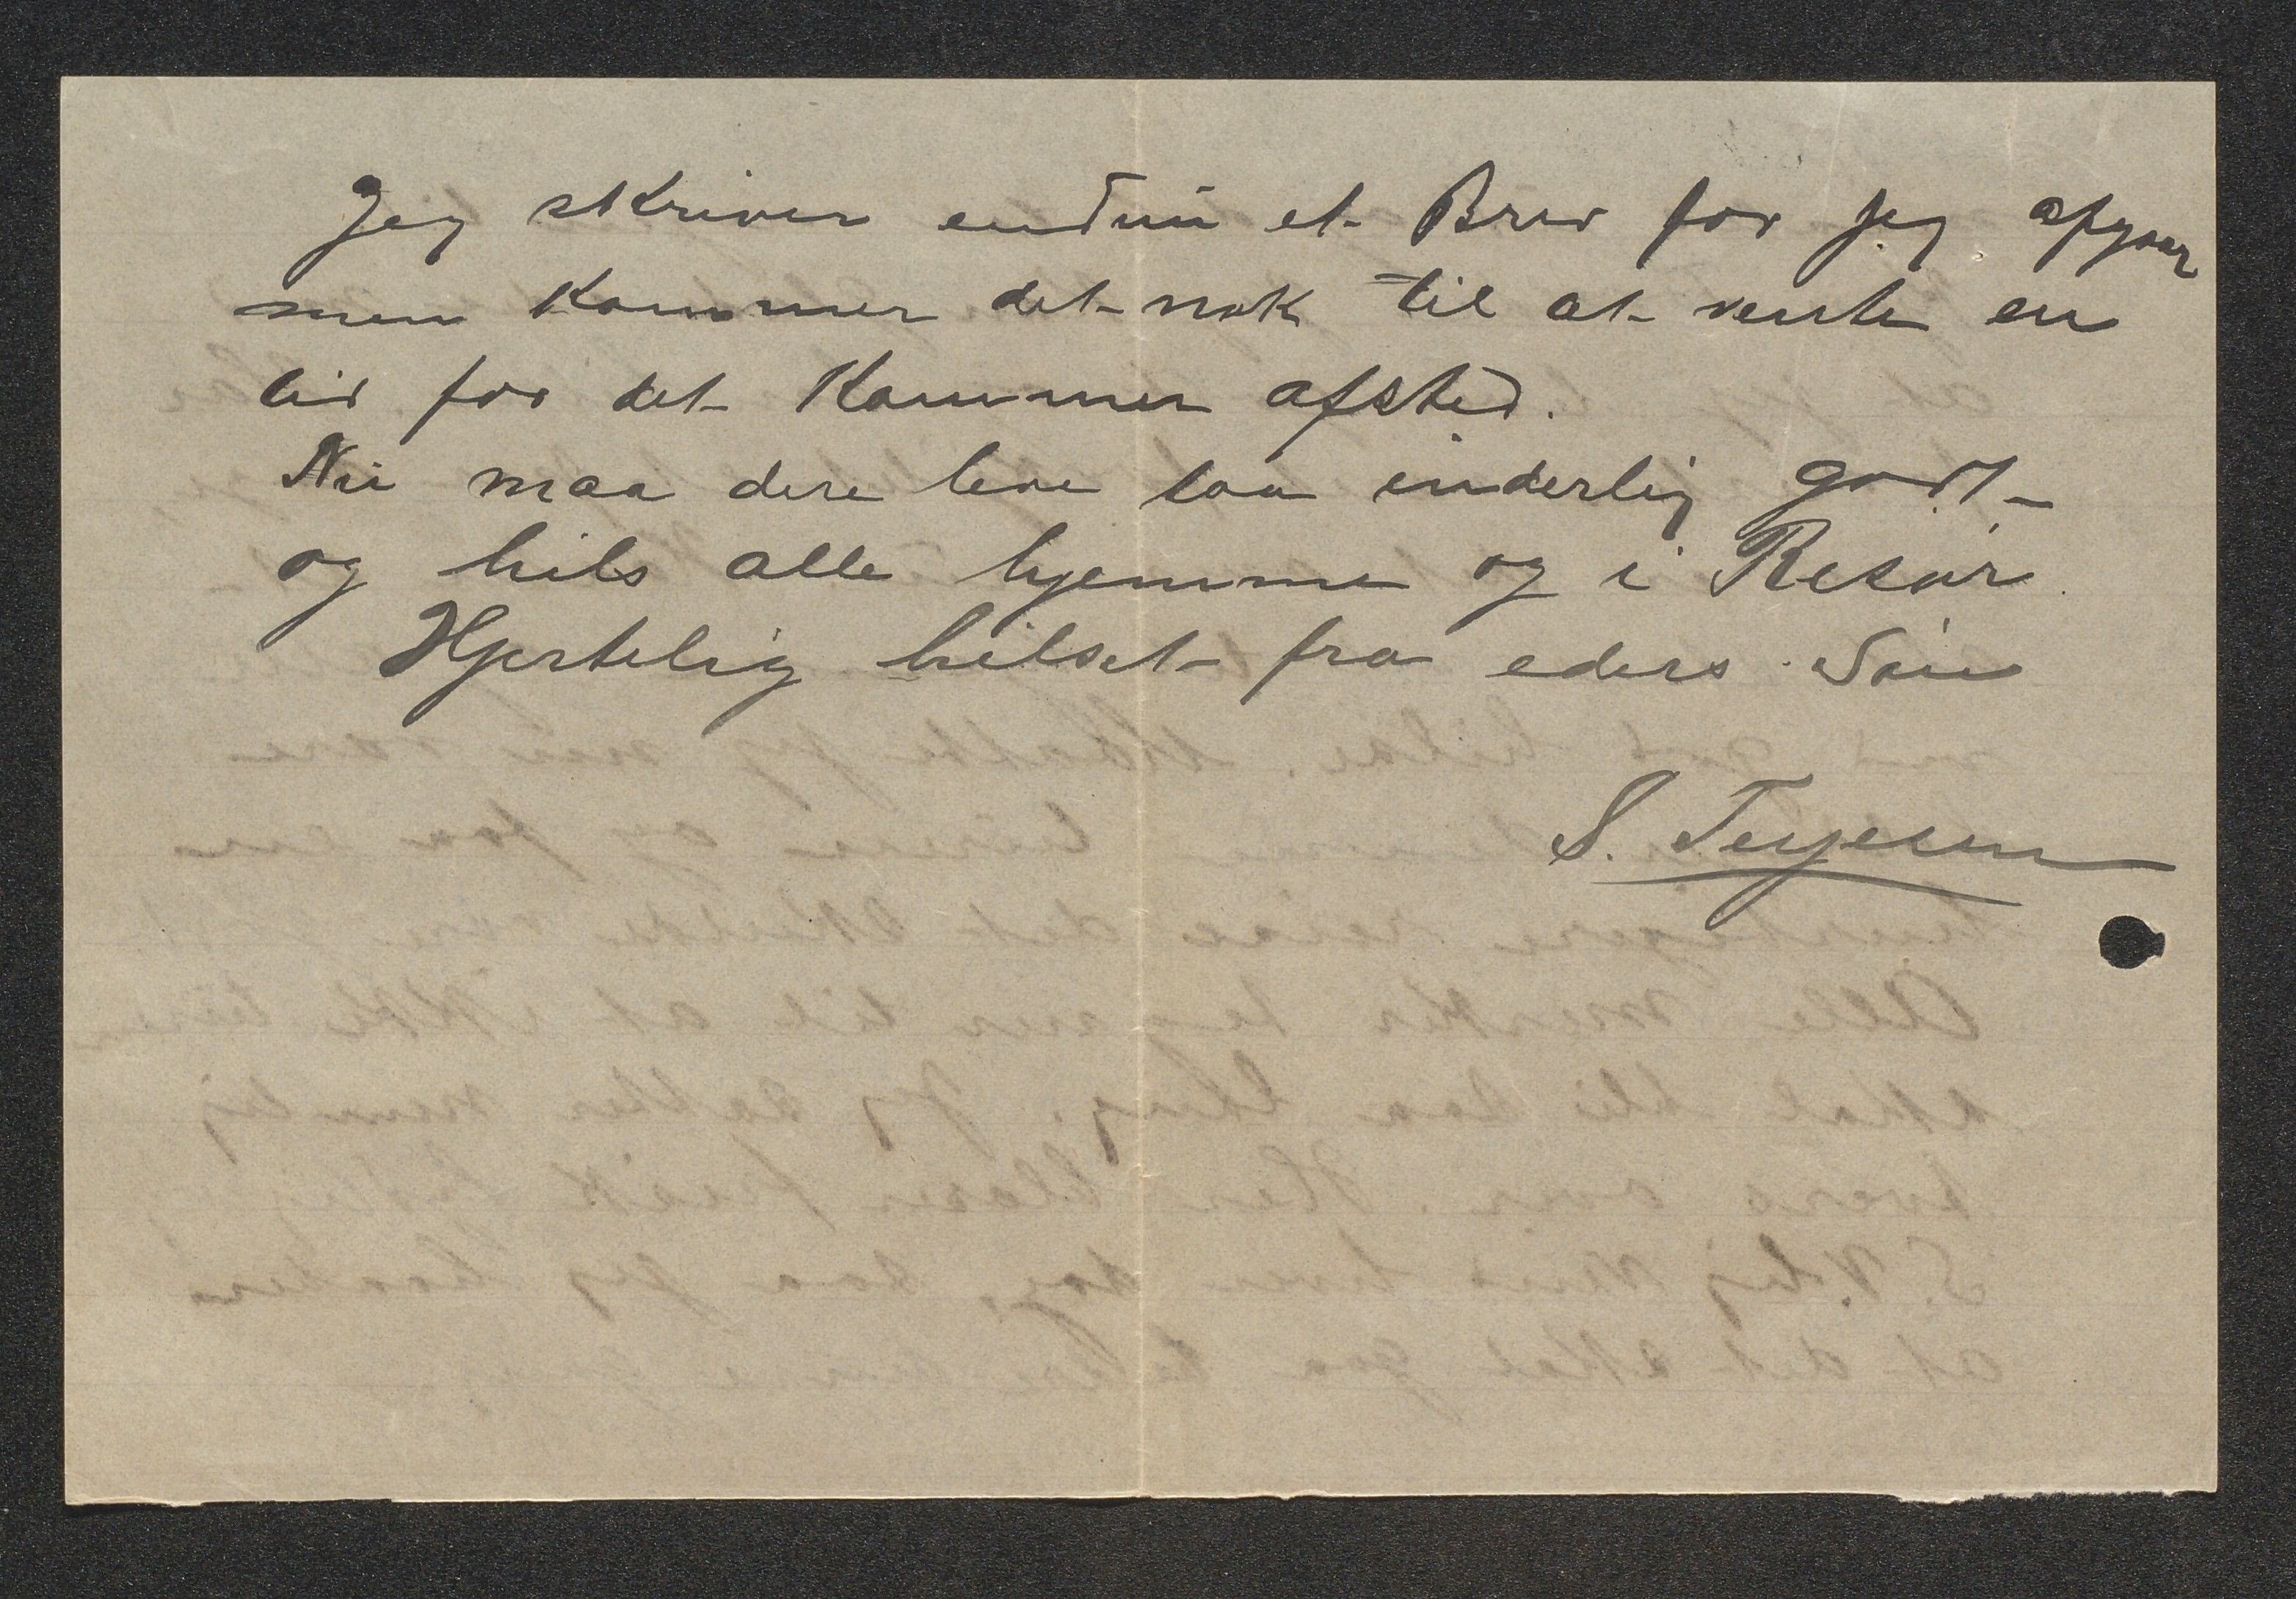 Jeg skriver endnu et Brev for jeg afgaar
men kommer det nok til at vente en
tid for det kommer afsted.
Nu maa dere leve saa inderlig godt
og hils alle hjemme og i Risør.
Hjertelig hilset fra eders Søn
S. Terjesen